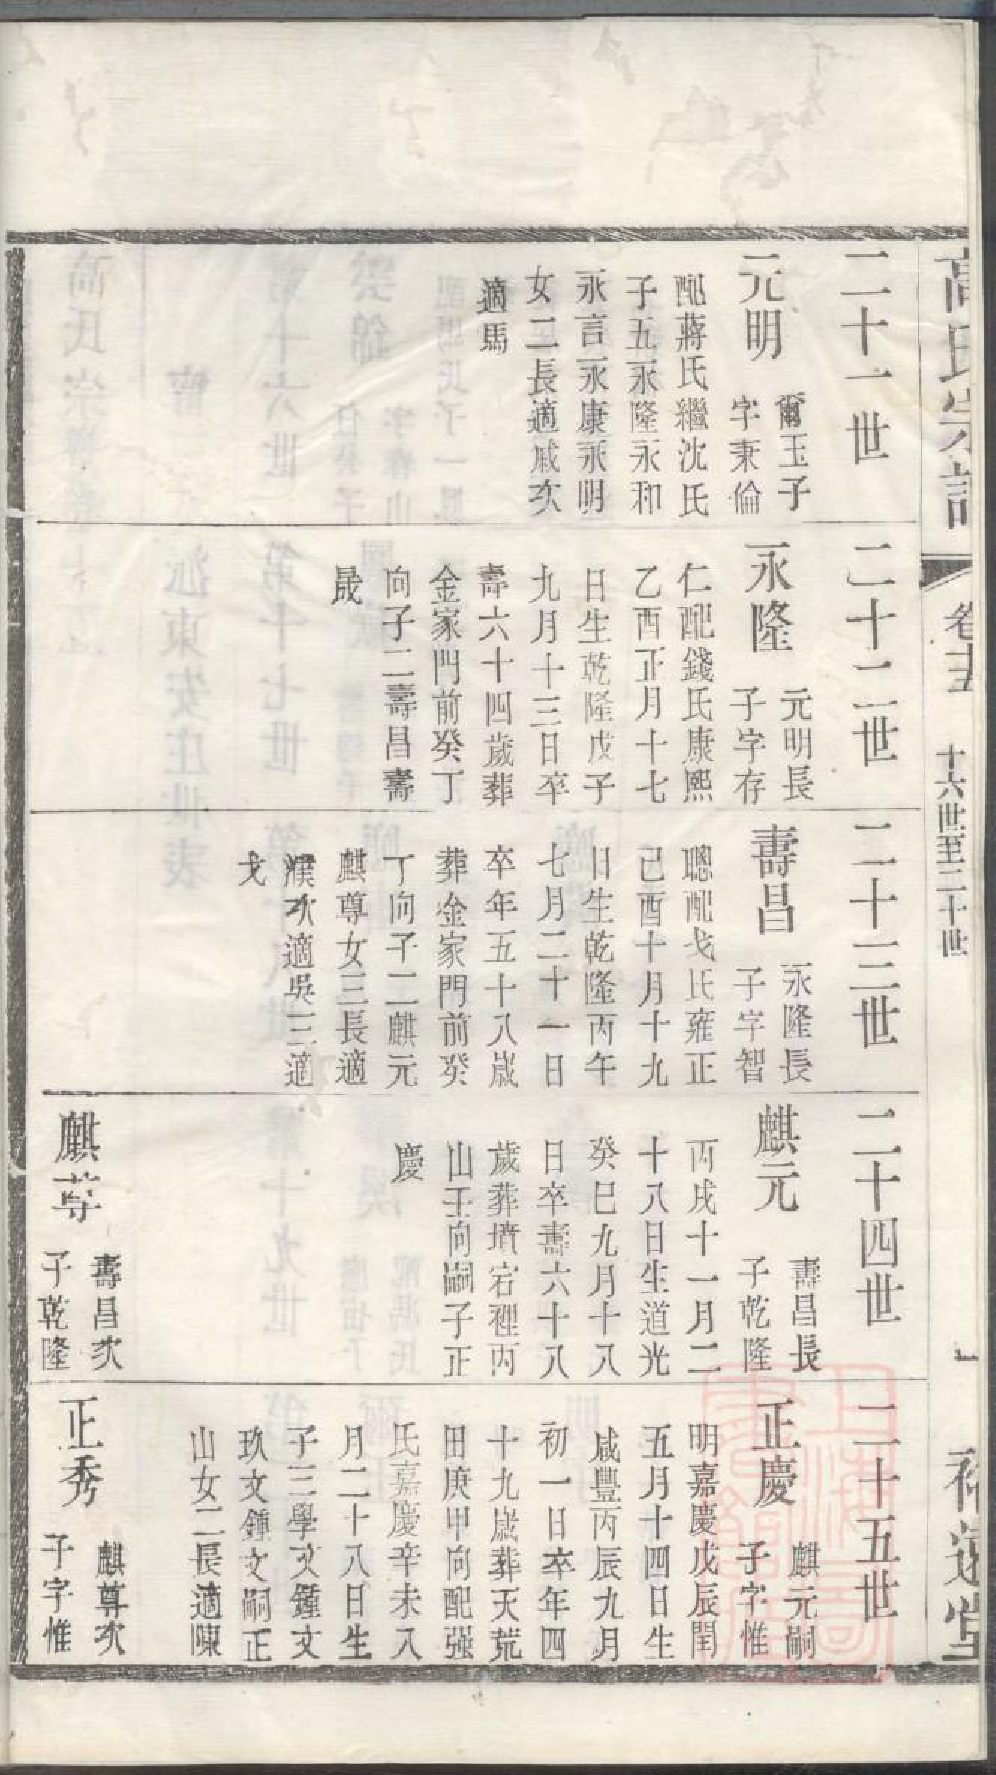 高氏宗譜
卷十五
十六世至二十世
一
二十一世
元明
爾玉子
字秉倫
配蔣氏繼沈氏
子五永隆永和
永言永康永明
女二長適戚次
適馬
二十二世
永隆
元明長
子字存
仁配錢氏康熙
乙酉正月十七
日生乾隆戊子
九月十三日卒
壽六十四歲葬
金家門前癸丁
向子二壽昌壽
晟
二十三世
壽昌
永隆長
子字智
聰配戈氏雍正
己酉十月十九
日生乾隆丙午
七月二十一日
卒年五十八歲
葬金家門前癸
丁向子二麒元
麒尊女三長適
濮次適吳三適
戈
二十四世
麒元
壽昌長
子乾隆
丙戌十一月二
十八日生道光
癸巳九月十八
日卒壽六十八
歲葬墳宕裡丙
山壬向嗣子正
慶
麒尊
壽昌次
子乾隆
二十五世
正慶
麒元嗣
子字惟
明嘉慶戊辰閏
五月十四日生
咸豐丙辰九月
初一日卒年四
十九歲葬天荒
田庚甲向配強
氏嘉慶辛未八
月二十八日生
子三學文鍾文
玖文鍾文嗣正
山女二長適陳
正秀
麒尊次
子字惟